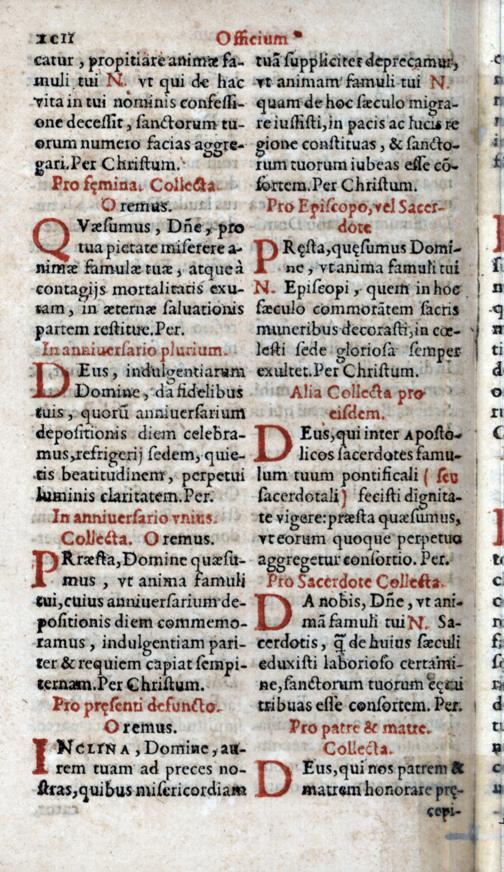 xcii
Officium
catur, propitiare animæ fa-
muli tui N. vt qui de hac
vita in tui nominis confessi-
one decessit, sanctorum tu-
orum numero facias aggre-
gari. Per Christum.
Pro fęmina. Collecta.
Oremus.
QVæsumus, Dñe, pro
tua pietate miserere a-
nimæ famulæ tuæ, atque à
contagijs mortalitatis exu-
tam, in æternæ saluationis
partem restitue. Per.
In anniuersario plurium.
DEus, indulgentiarum
Domine, da fidelibus
tuis, quorū anniuersarium
depositionis diem celebra-
mus, refrigerij sedem, quie-
tis beatitudinem, perpetui
luminis claritatem. Per.
In anniuersario vnius.
Collecta. Oremus.
PRræsta, Domine quæsu-
mus, vt anima famuli
tui, cuius anniuersarium de-
positionis diem commemo-
ramus, indulgentiam pari-
ter & requiem capiat sempi-
ternam. Per Christum.
Pro pręsenti defuncto.
Oremus.
INCLINA, Domine, au-
rem tuam ad preces no-
stras, quibus misericordiam
tuā suppliciter deprecamur,
vt animam famuli tui N.
quam de hoc sæculo migra-
re iussisti, in pacis ac lucis re
gione constituas, & sancto-
rum tuorum iubeas esse cō-
sortem. Per Christum.
Pro Episcopo, vel Sacer-
dote
PRęsta, quęsumus Domi-
ne, vt anima famuli tui
N. Episcopi, quem in hoc
sæculo commorātem sacris
muneribus decorasti, in cœ-
lesti sede gloriosa semper
exultet. Per Christum.
Alia Collecta pro
eisdem.
DEus, qui inter Aposto-
licos sacerdotes famu-
lum tuum pontificali (seu
sacerdotali) fecisti dignita-
te vigere: præsta quæsumus,
vt eorum quoque perpetuo
aggregetur consortio. Per.
Pro Sacerdote Collecta.
DA nobis, Dñe, vt ani-
mā famuli tui N. Sa-
cerdotis, q̃ de huius sæculi
eduxisti laborioso certami-
ne, sanctorum tuorum cętui
tribuas esse consortem. Per.
Pro patre & matre.
Collecta.
DEus, qui nos patrem &
matrem honorare prę-
cepi-